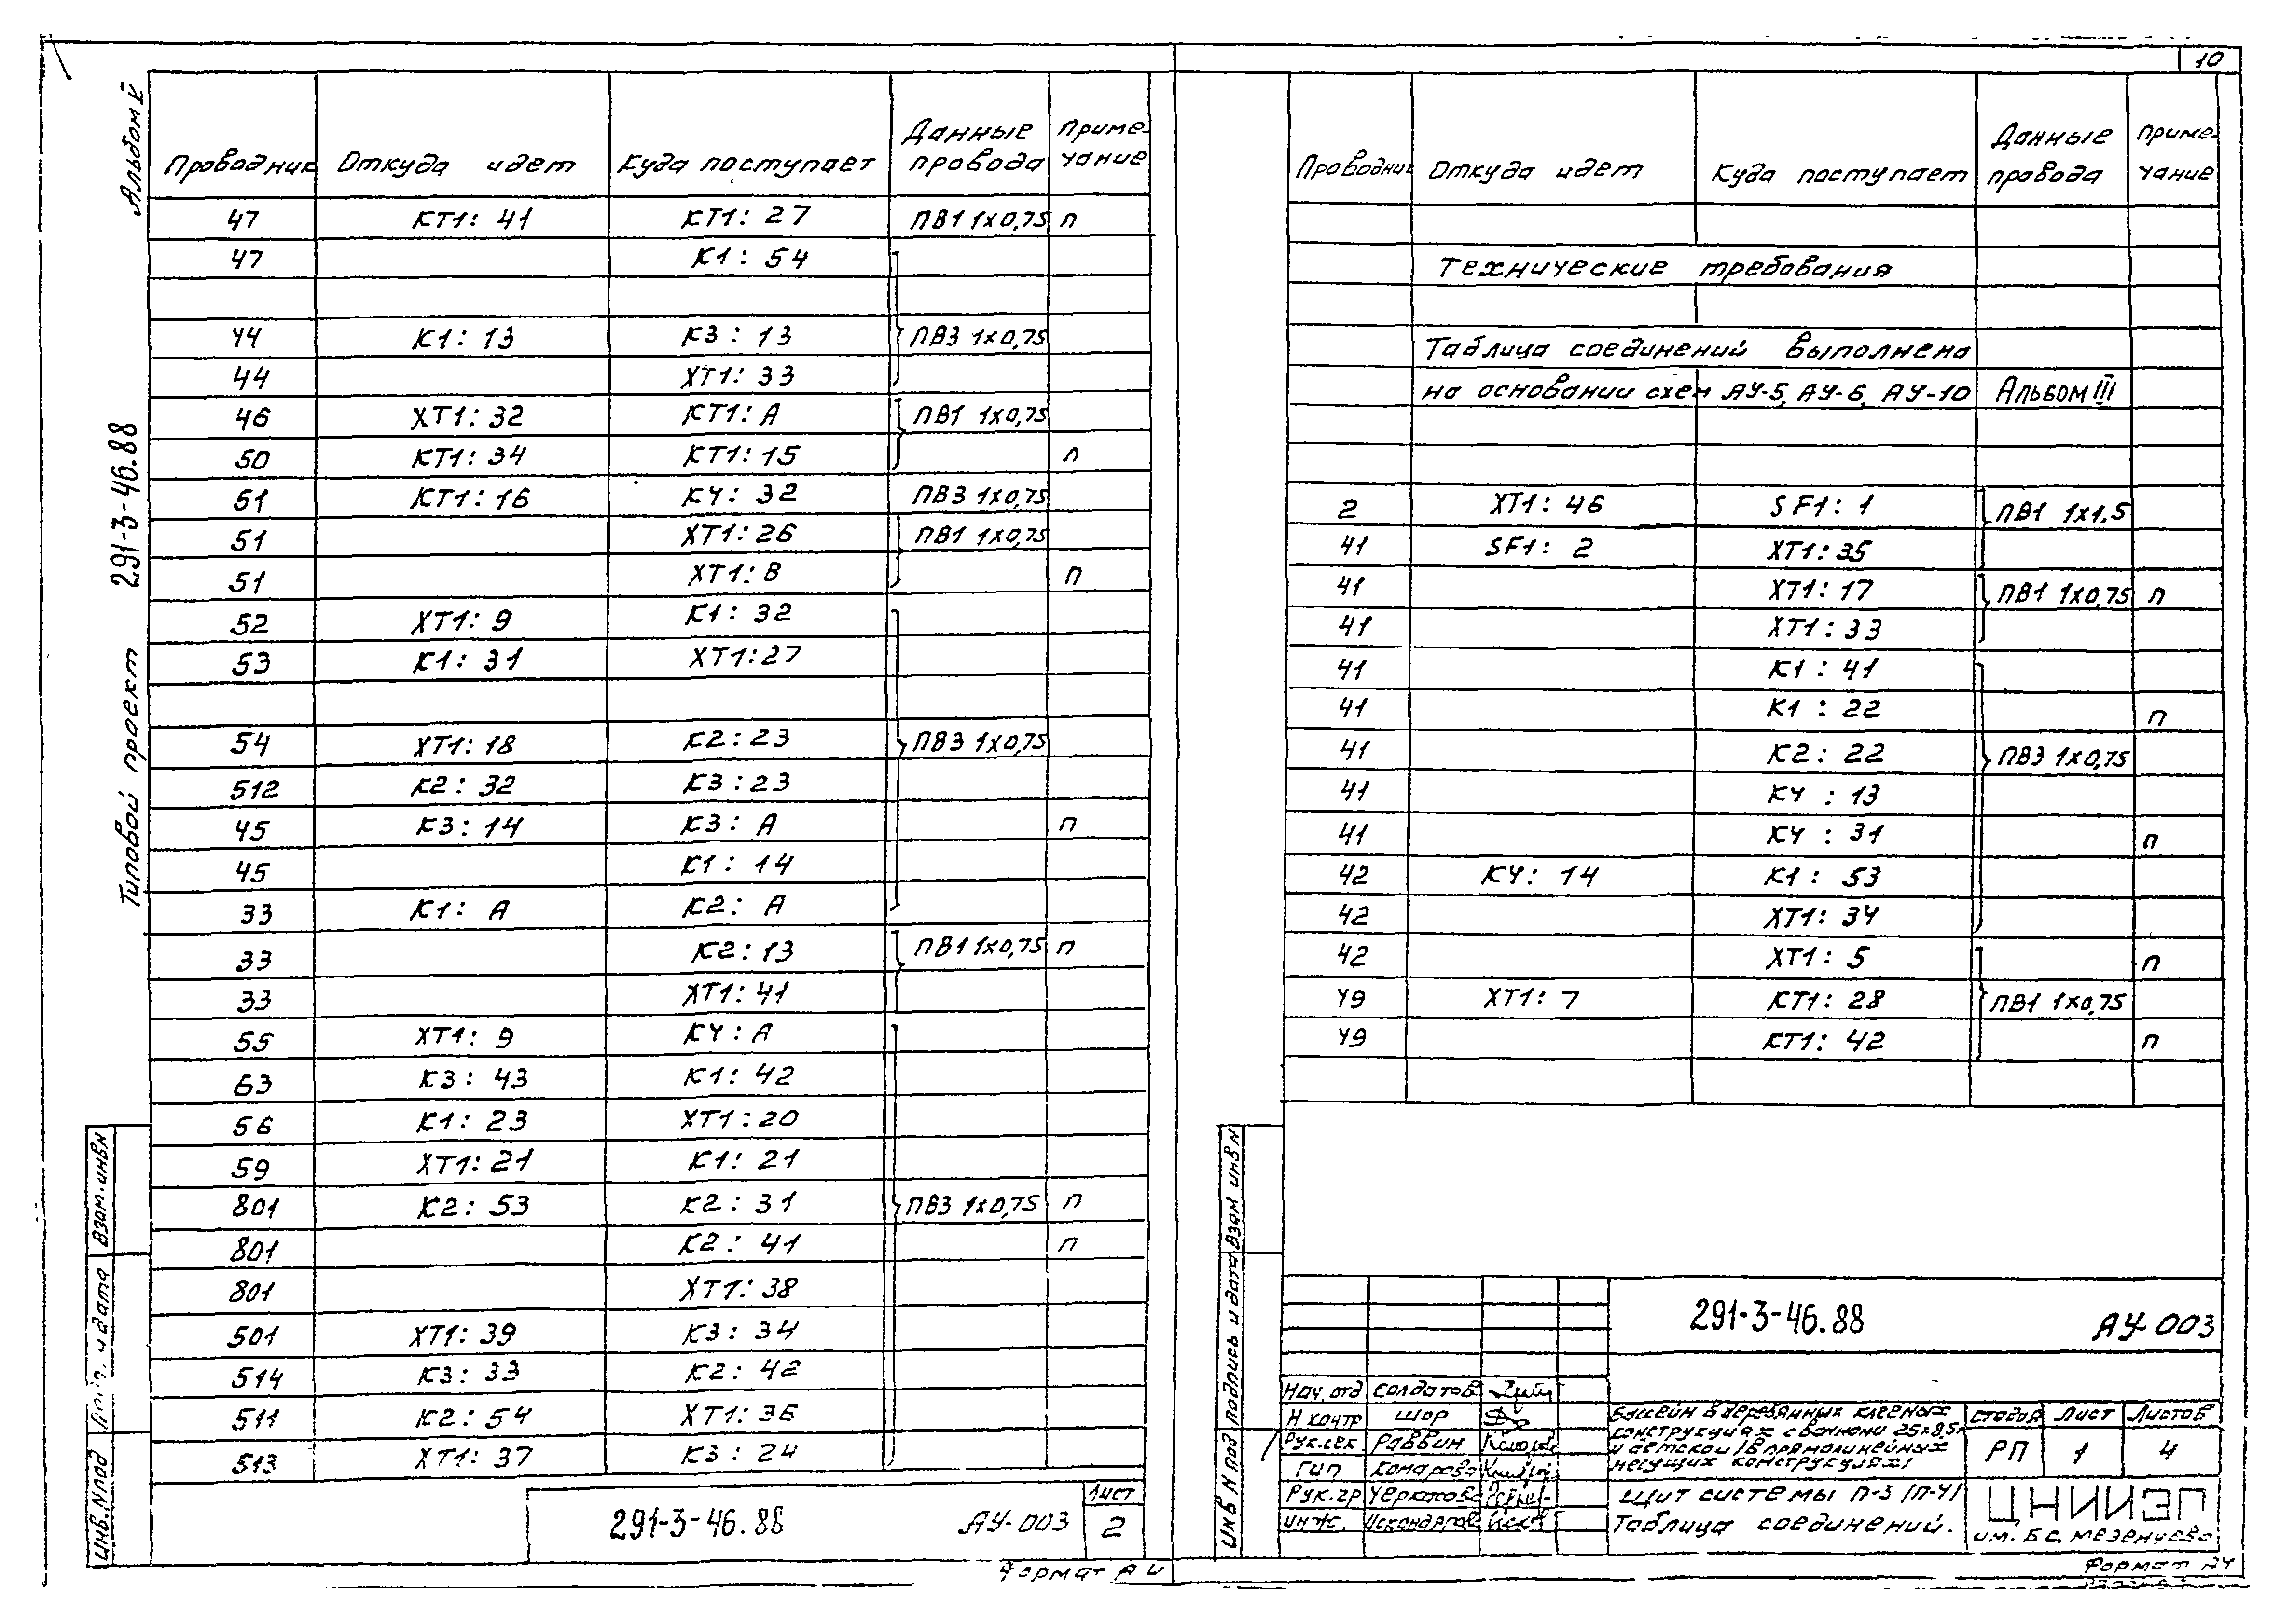 10
Альбом V
Типовой проект 291-3-46.88
Проводник Откуда идет Куда поступает Данные провода Примечание
47 КТ1: 41 КТ1: 27 ПВ1 1х0,75 п
47 К1: 54
44 К1: 13 К3: 13 ПВ3 1х0,75
44 ХТ1: 33
46 ХТ1: 32 КТ1: А ПВ1 1х0,75
50 КТ1: 34 КТ1: 15 п
51 КТ1: 16 К4: 32 ПВ3 1х0,75
51 ХТ1: 26 ПВ1 1х0,75
51 ХТ1: В п
52 ХТ1: 9 К1: 32
53 К1: 31 ХТ1: 27
54 ХТ1: 18 К2: 23 ПВ3 1х0,75
512 К2: 32 К3: 23
45 К3: 14 К3: А п
45 К1: 14
33 К1: А К2: А
33 К2: 13 ПВ1 1х0,75 п
33 ХТ1: 41
55 ХТ1: 9 К4: А
63 К3: 43 К1: 42
56 К1: 23 ХТ1: 20
59 ХТ1: 21 К1: 21
801 К2: 53 К2: 31 ПВ3 1х0,75 п
801 К2: 41 п
801 ХТ1: 38
501 ХТ1: 39 К3: 34
514 К3: 33 К2: 42
511 К2: 54 ХТ1: 36
513 ХТ1: 37 К3: 24
Взам. инв N
Подп. и дата
Инв. N под
291-3-46.88 АУ-003 Лист 2
Формат А4
Проводник Откуда идет Куда поступает Данные провода Примечание
Технические требования
Таблица соединений выполнена
на основании схем АУ-5, АУ-6, АУ-10 Альбом III
2 ХТ1: 46 SF1: 1 ПВ1 1х1,5
41 SF1: 2 ХТ1: 35
41 ХТ1: 17 ПВ1 1х0,75 п
41 ХТ1: 33
41 К1: 41
41 К1: 22 п
41 К2: 22 ПВ3 1х0,75
41 К4: 13
41 К4: 31 п
42 К4: 14 К1: 53
42 ХТ1: 34
42 ХТ1: 5 п
49 ХТ1: 7 КТ1: 28 ПВ1 1х0,75
49 КТ1: 42 п
Взам инв N
Подпись и дата
Инв N под
291-3-46.88 АУ-003
Нач. отд Солдатов
Н контр Шор
Рук. сек. Раввин
Гип Комарова
Рук. гр
Инж.
Бассейн в деревянных клееных
конструкциях с ванной 25х8,5
и детской /в прямолинейных
несущих конструкциях/
Стадия Лист Листов
РП 1 4
Щит системы П-3 /П-4/
Таблица соединений.
ЦНИИЭП
им. Б.С. Мезенцева
Формат А4